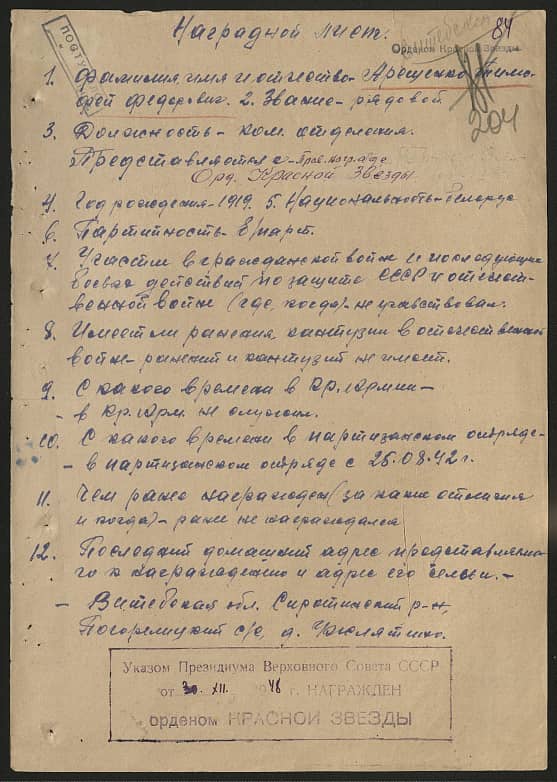 Наградной лист.
84
Витебская
Орденом Красной Звезды
ПОСТУПИЛО
204
1. Фамилия, имя и отчество - Арещенко Тимо-
фей Федорович. 2. Звание - рядовой.
3. Должность - ком. отделения.
Представляется к
Орд. Красной Звезды
4. Год рождения - 1919. 5. Национальность - белорус
6. Партийность - б/парт.
7. Участие в гражданской войне и последующих
боевых действиях по защите СССР и отечест-
венной войне (где, когда) - не участвовал.
8. Имеет ли ранения, контузии в отечественной
войне - ранений и контузий не имеет.
9. С какого времени в Кр. Армии -
- в Кр. Арм. не служил.
10. С какого времени в партизанском отряде -
- в партизанском отряде с 25.08.42 г.
11. Чем ранее награжден (за какие отличия
и когда) - ранее не награждался
12. Последний домашний адрес представляемо-
го к награждению и адрес его семьи. -
- Витебская обл. Сиротинский р-н,
с/с, д.
Указом Президиума Верховного Совета СССР
от 30. XII. 1948 г. НАГРАЖДЕН
орденом КРАСНОЙ ЗВЕЗДЫ